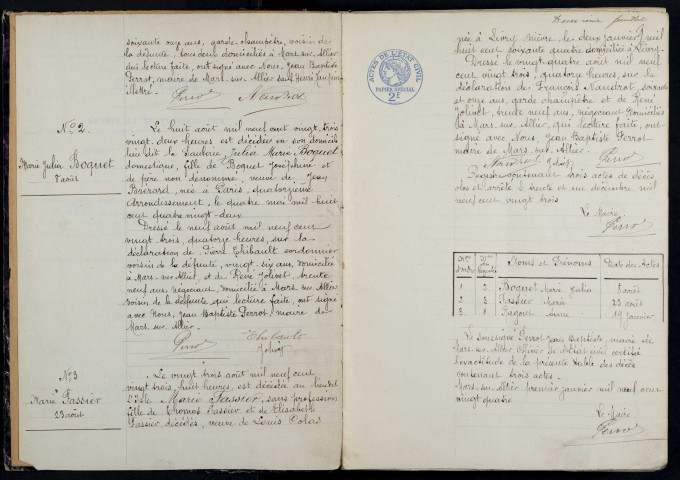 soixante onze ans, garde champêtre, voisin de
la défunte, tous deux domiciliés à Mars-sur-Allier
qui lecture faite, ont signé avec Nous, Jean Baptiste
Perrot, maire de Mars-sur-Allier sauf
illettré.
Perrot
N° 2.
Marie Julia Boquet
8 août
Le huit août mil neuf cent vingt trois
vingt deux heures est décédée en son domicile
lieu dit Julia Marie Boquet
domestique, fille de Boquet Joséphine et
de père non dénommé, veuve de Jean
née à Paris, quatorzième
arrondissement, le quatre mai mil huit
cent quatre vingt-deux
Dressé le neuf août mil neuf cent
vingt trois, quatorze heures, sur la
déclaration de Pierre Thibault
voisin de la défunte, vingt six ans, domicilié
à Mars sur Allier, et de René Jolivet, trente
neuf ans, négociant, domicilié à Mars sur Allier
voisin de la défunte qui lecture faite, ont signé
avec Nous, Jean Baptiste Perrot, maire de
Mars sur Allier.
Perrot Thibault
Jolivet
N° 3
Marie Passier
23 août
Le vingt trois août mil neuf cent
vingt trois, huit heures, est décédée au lieu dit
l'Isle Marie Passier, sans profession
fille de Thomas Passier et de Elisabeth
Passier, décédés, veuve de Louis
Deuxième feuillet
née à Livry Nièvre le deux janvier mil
huit cent soixante quatre domiciliée à Livry
Dressé le vingt quatre août mil neuf
cent vingt trois, quatorze heures, sur la
déclaration de François Naudrot, soixante
et onze ans, garde champêtre et de René
Jolivet, trente neuf ans, négociant domiciliés
à Mars sur Allier, qui, lecture faite, ont
signé avec Nous, Jean Baptiste Perrot
maire de Mars sur Allier.
Jolivet Perrot
Registre contenant trois actes de décès
clos et arrêté le trente et un décembre mil
neuf cent vingt trois
Le Maire
Perrot
ACTES DE L'ÉTAT CIVIL
PAPIER SPÉCIAL
2F
Noms et Prénoms Date des Actes
1 2 Boquet Marie Julia 8 août
2 3 Passier Marie 23 août
3 1 Ragout 19 janvier
Le soussigné Perrot Jean Baptiste, maire de
Mars sur Allier Officier de l'état civil certifie
l'exactitude de la présente table des décès
contenant trois actes.
Mars sur Allier premier janvier mil neuf cent
vingt quatre
Le Maire
Perrot